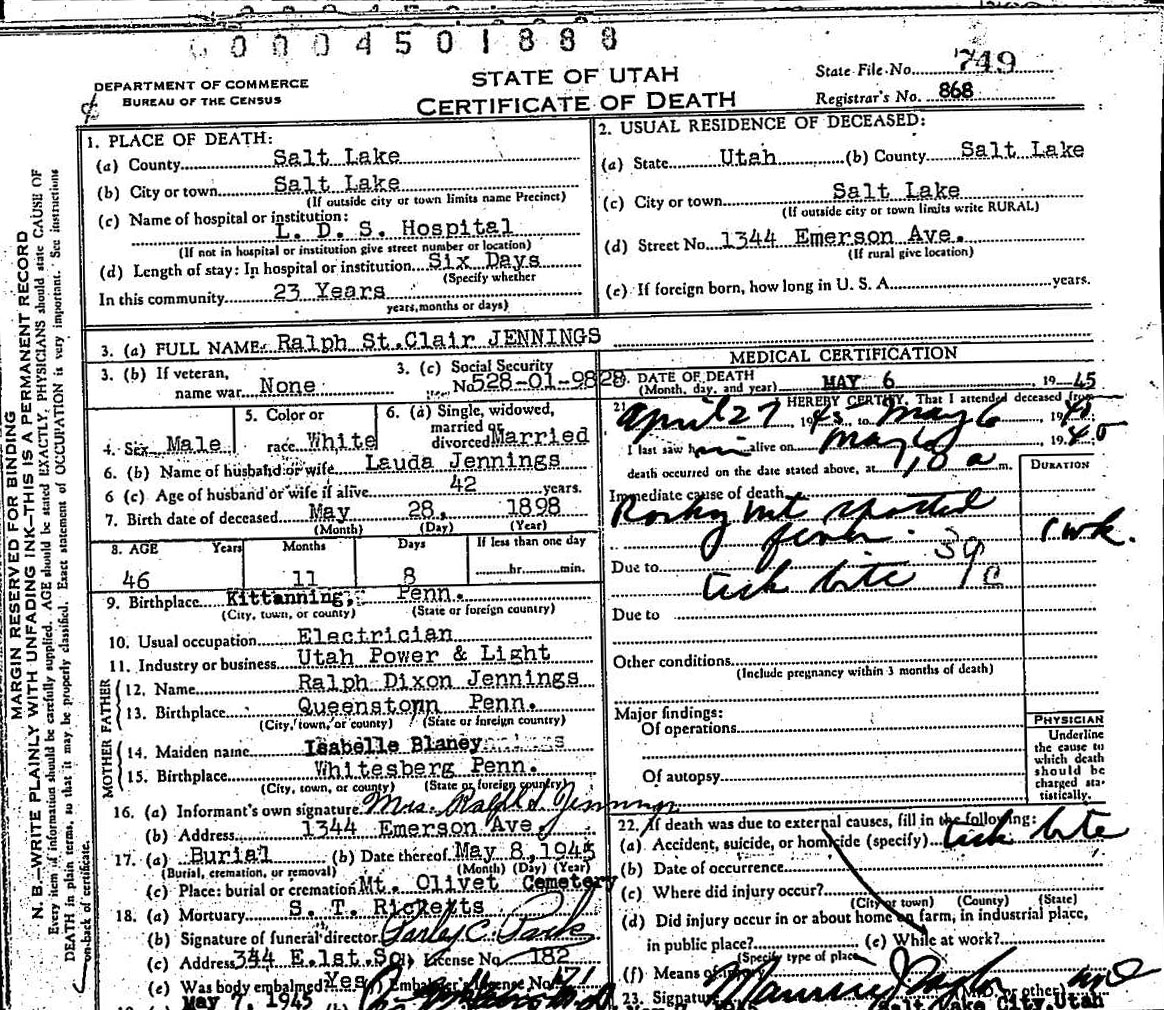 00004501888
DEPARTMENT OF COMMERCE
BUREAU OF THE CENSUS
STATE OF UTAH
CERTIFICATE OF DEATH
State File No. 749
Registrar's No. 868
MARGIN RESERVED FOR BINDING
N. B.—WRITE PLAINLY WITH UNFADING INK—THIS IS A PERMANENT RECORD
Every item of information should be carefully supplied. AGE should be stated EXACTLY. PHYSICIANS should state CAUSE OF
DEATH in plain terms, so that it may be properly classified. Exact statement of OCCUPATION is very important. See instructions
on back of certificate.
1. PLACE OF DEATH:
(a) County Salt Lake
(b) City or town Salt Lake
(If outside city or town limits name Precinct)
(c) Name of hospital or institution:
L. D. S. Hospital
(If not in hospital or institution give street number or location)
(d) Length of stay: In hospital or institution Six Days
(Specify whether
In this community 23 Years
years, months or days)
2. USUAL RESIDENCE OF DECEASED:
(a) State Utah (b) County Salt Lake
(c) City or town Salt Lake
(If outside city or town limits write RURAL)
(d) Street No. 1344 Emerson Ave.
(If rural give location)
(e) If foreign born, how long in U. S. A. years.
3. (a) FULL NAME Ralph St.Clair JENNINGS
3. (b) If veteran, 3. (c) Social Security
name war None No 528-01-9828
4. Sex Male
5. Color or
race White
6. (a) Single, widowed,
married or
divorced Married
6. (b) Name of husband or wife Lauda Jennings
6 (c) Age of husband or wife if alive 42 years.
7. Birth date of deceased May 28, 1898
(Month) (Day) (Year)
8. AGE Years Months Days If less than one day
46 11 8 hr. min.
9. Birthplace Kittanning, Penn.
(City, town, or county) (State or foreign country)
10. Usual occupation Electrician
11. Industry or business Utah Power & Light
FATHER
12. Name Ralph Dixon Jennings
13. Birthplace Queenstown Penn.
(City, town, or county) (State or foreign country)
MOTHER
14. Maiden name Isabelle Blaney
15. Birthplace Whitesberg Penn.
(City, town, or county) (State or foreign country)
16. (a) Informant's own signature Mrs. Ralph S. Jennings
(b) Address 1344 Emerson Ave.
17. (a) Burial (b) Date thereof May 8, 1945
(Burial, cremation, or removal) (Month) (Day) (Year)
(c) Place: burial or cremation Mt. Olivet Cemetery
18. (a) Mortuary S. T. Ricketts
(b) Signature of funeral director Parley C. Parks
(c) Address 344 E.1st.So. License No. 182
(e) Was body embalmed? Yes Embalmer License No. 171
May 7, 1945
MEDICAL CERTIFICATION
20. DATE OF DEATH
(Month, day, and year) MAY 6, 1945
21. I HEREBY CERTIFY, That I attended deceased from
April 27 1945 to May 6 1945
I last saw him alive on May 6 1945
death occurred on the date stated above, at m.
DURATION
Immediate cause of death
Rocky Mt spotted
fever. 1 wk.
Due to tick bite
39c
Due to
Other conditions
(Include pregnancy within 3 months of death)
Major findings:
Of operations
Of autopsy
PHYSICIAN
Underline
the cause to
which death
should be
charged sta-
tistically.
22. If death was due to external causes, fill in the following:
(a) Accident, suicide, or homicide (specify) tick bite
(b) Date of occurrence
(c) Where did injury occur?
(City or town) (County) (State)
(d) Did injury occur in or about home on farm, in industrial place,
in public place? (e) While at work?
(Specify type of place)
(f) Means of injury
23. Signature Maurice J Taylor MD
(M.D. or other)
Salt Lake City, Utah